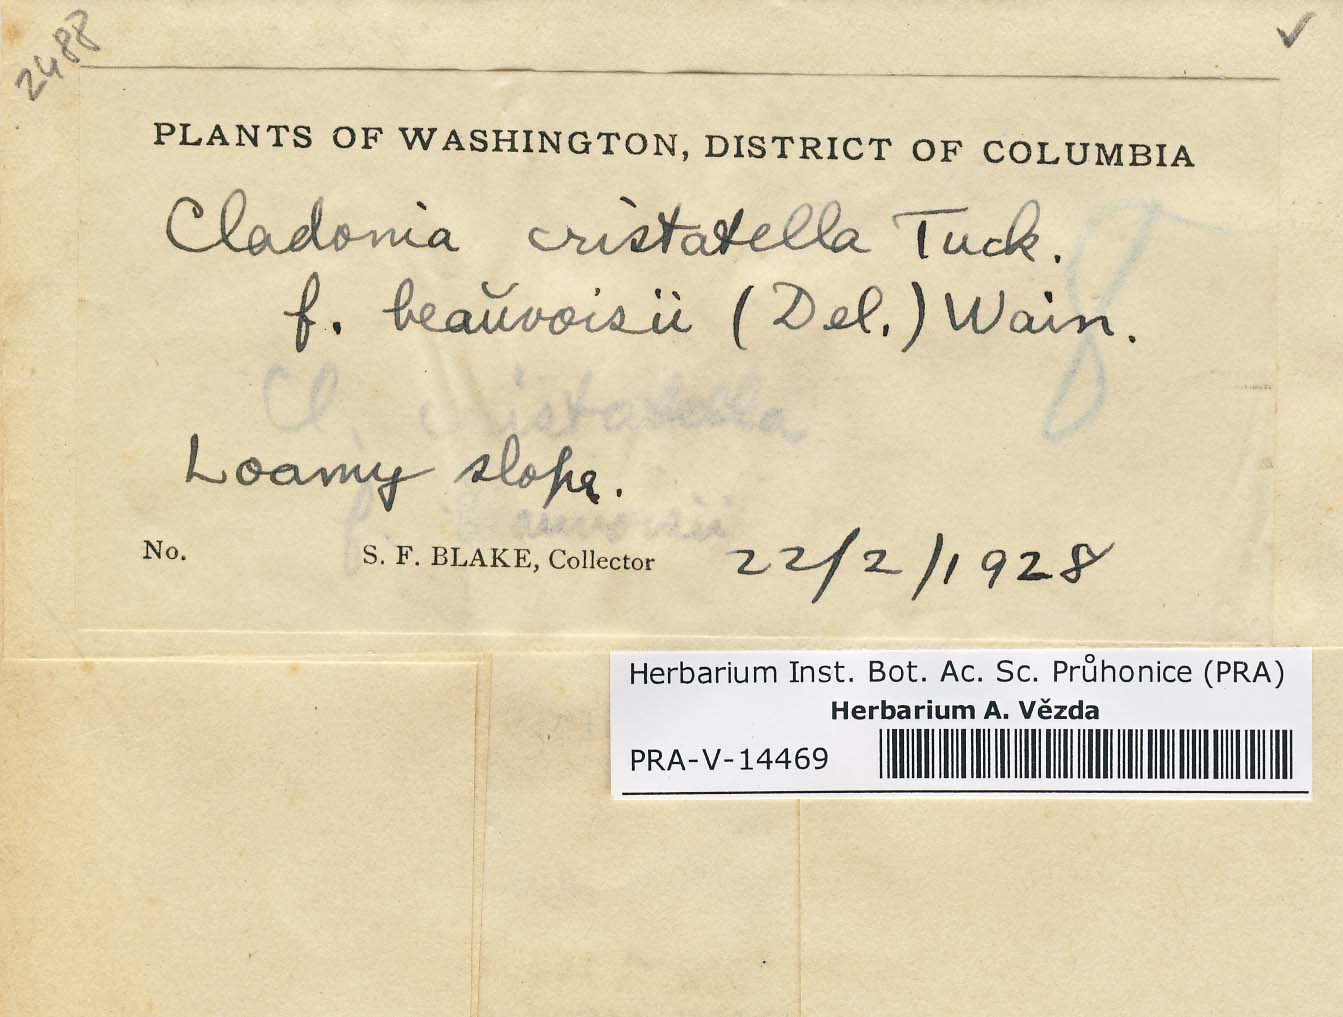 2488
✓
PLANTS OF WASHINGTON, DISTRICT OF COLUMBIA
Cladonia cristatella Tuck.
f. beaŭvoisii (Del.) Wain.
8
Cl. cristatella
Loamy slope.
f. beauvoisii
No. S. F. BLAKE, Collector 22/2/1928
Herbarium Inst. Bot. Ac. Sc. Průhonice (PRA)
Herbarium A. Vězda
PRA-V-14469